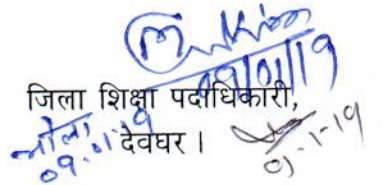 09/01/19
जिला शिक्षा पदाधिकारी,
देवघर ।
भोला
09.01.19